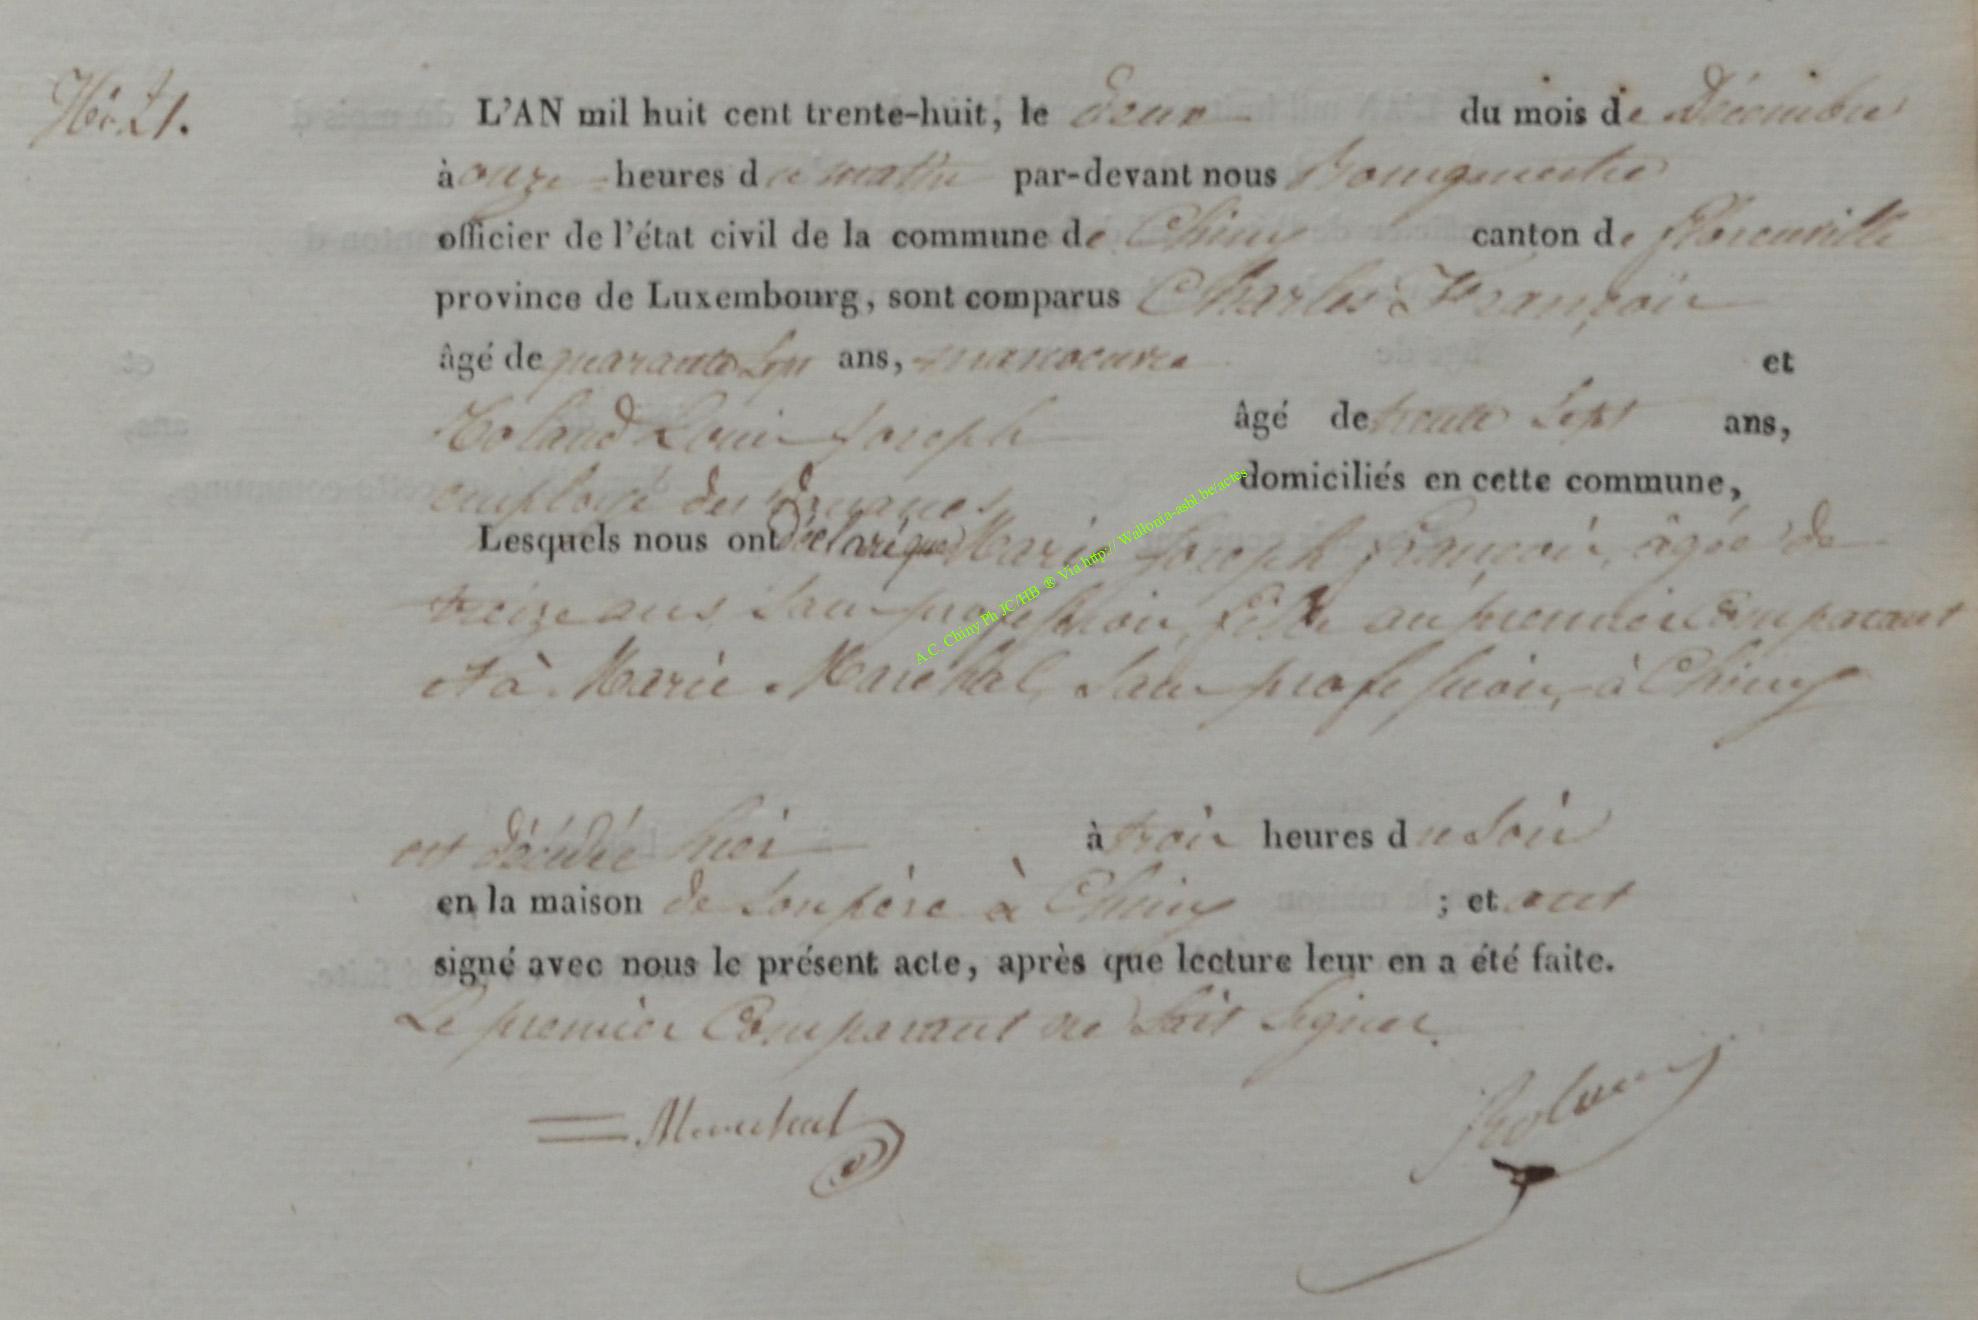 No 21.
L'AN mil huit cent trente-huit, le deux du mois de Décembre
à onze heures du matin par-devant nous Bourgmestre
officier de l'état civil de la commune de Chiny canton de florenville
province de Luxembourg, sont comparus Charles François
âgé de quarante sept ans, manoeuvre et
Roland Louis Joseph âgé de trente sept ans,
employé des douanes domiciliés en cette commune,
Lesquels nous ont déclaré que Marie Joseph françois, âgée de
treize ans, sans profession, fille au premier Comparant
et à Marie Maréchal, sans profession, à Chiny
est décédée hier à trois heures du soir
en la maison de son père à Chiny ; et ont
signé avec nous le présent acte, après que lecture leur en a été faite.
Le premier Comparant ne sait signer.
Marechal Roland
A.C. Chiny Ph JC/HB ® Via http:// Wallonia-asbl.be/actes